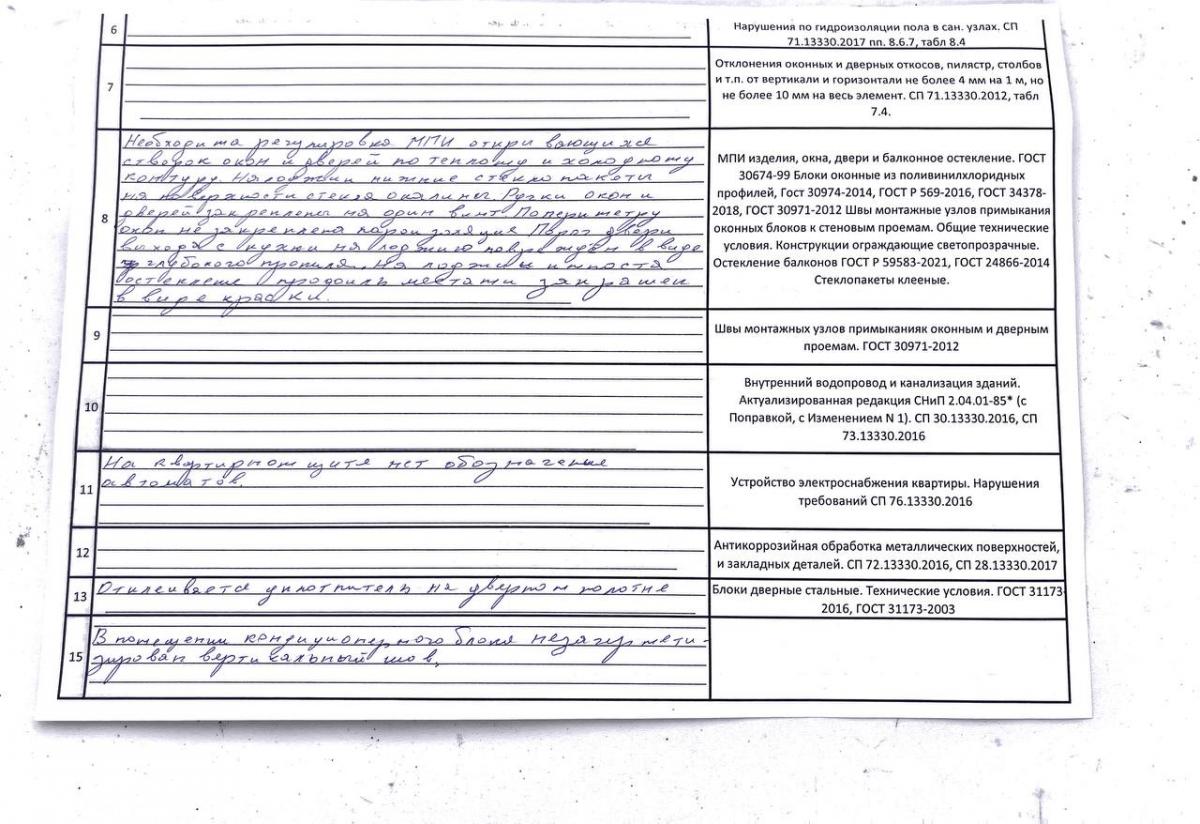 6
Нарушения по гидроизоляции пола в сан. узлах. СП
71.13330.2017 пп. 8.6.7, табл 8.4
7
Отклонения оконных и дверных откосов, пилястр, столбов
и т.п. от вертикали и горизонтали не более 4 мм на 1 м, но
не более 10 мм на весь элемент. СП 71.13330.2012, табл
7.4.
8
Необходима регулировка МПИ открывающихся
створок окон и дверей по теплому и холодному
контуру. На лоджии нижние стеклопакеты
на поверхности стекла окалины. Ручки окон и
дверей закреплены на один винт. По периметру
окон не закреплена пароизоляция. Порог двери
выхода с кухни на лоджию поврежден в виде
глубокого пропила. На лоджии импоста
остекление местами закрашен
в виде краски.
МПИ изделия, окна, двери и балконное остекление. ГОСТ
30674-99 Блоки оконные из поливинилхлоридных
профилей, Гост 30974-2014, ГОСТ Р 569-2016, ГОСТ 34378-
2018, ГОСТ 30971-2012 Швы монтажные узлов примыкания
оконных блоков к стеновым проемам. Общие технические
условия. Конструкции ограждающие светопрозрачные.
Остекление балконов ГОСТ Р 59583-2021, ГОСТ 24866-2014
Стеклопакеты клееные.
9
Швы монтажных узлов примыканияк оконным и дверным
проемам. ГОСТ 30971-2012
10
Внутренний водопровод и канализация зданий.
Актуализированная редакция СНиП 2.04.01-85* (с
Поправкой, с Изменением N 1). СП 30.13330.2016, СП
73.13330.2016
11
На квартирном щитя нет обозначения
автоматов.
Устройство электроснабжения квартиры. Нарушения
требований СП 76.13330.2016
12
Антикоррозийная обработка металлических поверхностей,
и закладных деталей. СП 72.13330.2016, СП 28.13330.2017
13
Отклеивается уплотнитель на дверном полотне
Блоки дверные стальные. Технические условия. ГОСТ 31173-
2016, ГОСТ 31173-2003
15
В помещении кондиционерного блока незагермети-
зирован вертикальный шов.